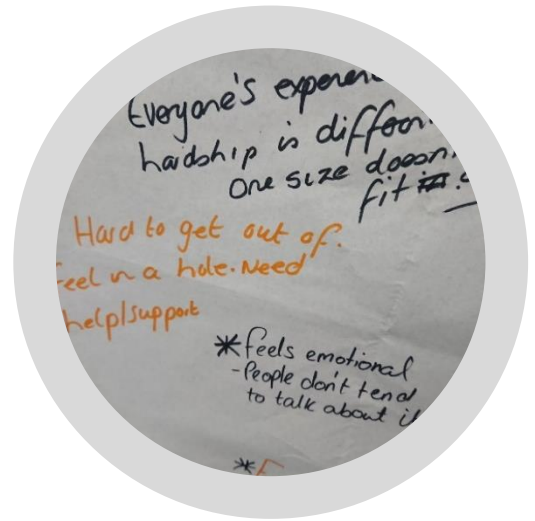 Everyone's experien
hardship is differen
One size doesn
fit
Hard to get out of.
feel in a hole. Need
help/support
* feels emotional
- People don't tend
to talk about it
*